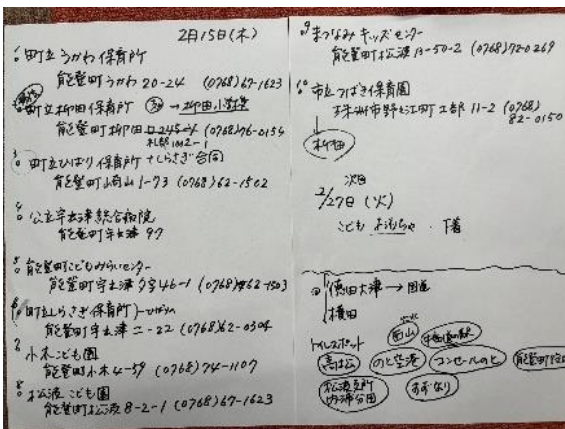 2月15日(木)
1. 町立うかわ保育所
能登町うかわ 20-24 (0768)67-1623
町立柳田保育所 → 柳田小学校
能登町柳田 (0768)76-0154
3. 町立ひばり保育所 + しらさぎ合同
能登町崎山 1-73 (0768)62-1502
4. 公立宇出津総合病院
能登町宇出津 97
5. 能登町こどもみらいセンター
能登町宇出津タ字46-1 (0768)62-1503
6. 町立しらさぎ保育所
能登町宇出津ニ-22 (0768)62-0304
7 小木こども園
能登町小木 4-59 (0768)74-1107
8. 松波こども園
能登町松波 8-2-1 (0768)67-1623
9 まつなみキッズセンター
能登町松波 13-50-2 (0768)72-0269
10 市立つばき保育園
珠洲市野々江町 11-2 (0768)
82-0150
↓
柳田
次回
2/27日 (火)
こども おもちゃ・下着
徳田大津 → 国道
横田
西山
トイレスポット
高松 のと空港 コンセールのと
松波支所 すずなり
内浦分団